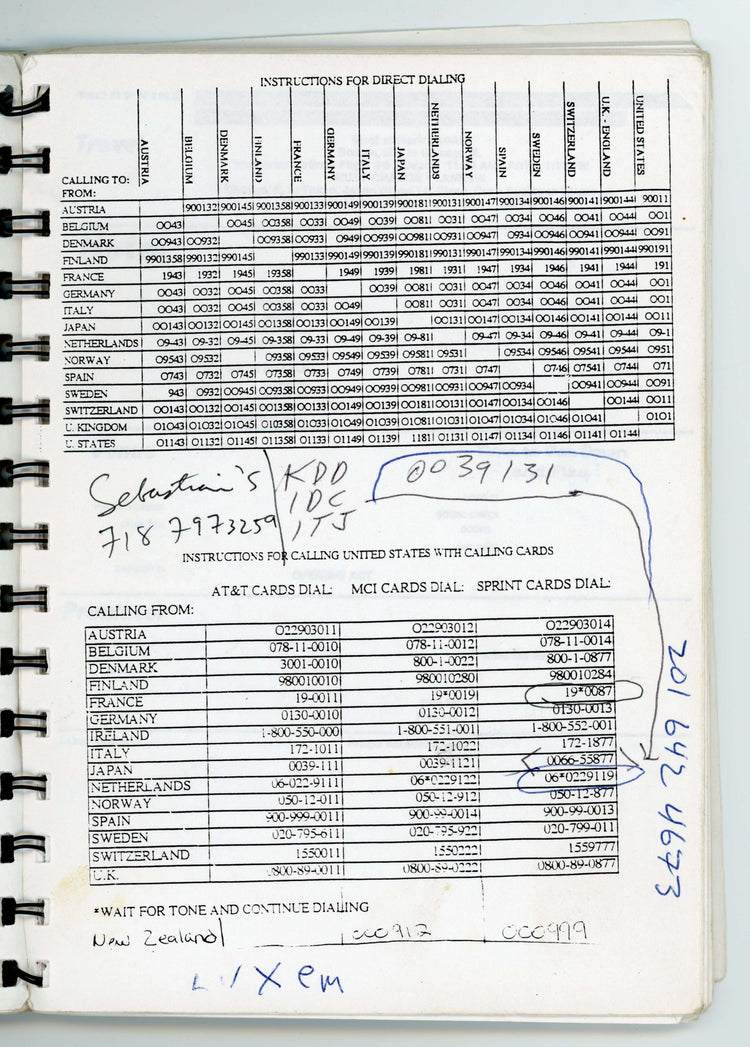 INSTRUCTIONS FOR DIRECT DIALING
CALLING TO: AUSTRIA BELGIUM DENMARK FINLAND FRANCE GERMANY ITALY JAPAN NETHERLANDS NORWAY SPAIN SWEDEN SWITZERLAND U.K. - ENGLAND UNITED STATES
FROM:
AUSTRIA 900132 900145 9001358 900133 900149 900139 900181 900131 900147 900134 900146 900141 900144 90011
BELGIUM OO43 OO45 OO358 OO33 OO49 OO39 OO81 OO31 OO47 OO34 OO46 OO41 OO44 OO1
DENMARK OO943 OO932 OO9358 OO933 O0949 OO939 OO981 OO931 OO947 O0934 OO946 OO941 OO944 OO91
FINLAND 9901358 990132 990145 990133 990149 990139 990181 990131 990147 990134 990146 990141 990144 990191
FRANCE 1943 1932 1945 19358 1949 1939 1981 1931 1947 1934 1946 1941 1944 191
GERMANY OO43 OO32 OO45 OO358 OO33 OO39 OO81 OO31 OO47 OO34 OO46 OO41 OO44 OO1
ITALY OO43 OO32 OO45 OO358 OO33 OO49 OO81 OO31 OO47 OO34 OO46 OO41 OO44 OO1
JAPAN OO143 OO132 OO145 OO1358 OO133 OO149 OO139 OO131 OO147 OO134 OO146 OO141 OO144 OO11
NETHERLANDS O9-43 O9-32 O9-45 O9-358 O9-33 O9-49 O9-39 O9-81 O9-47 O9-34 O9-46 O9-41 O9-44 O9-1
NORWAY O9543 O9532 O9358 O9533 O9549 O9539 O9581 O9531 O9534 O9546 O9541 O9544 O951
SPAIN O743 O732 O745 O7358 O733 O749 O739 O781 O731 O747 O746 O7541 O744 O71
SWEDEN 943 O932 OO945 OO9358 OO933 OO949 OO939 OO981 OO931 OO947 OO934 OO941 OO944 OO91
SWITZERLAND OO143 OO132 OO145 OO1358 OO133 OO149 OO139 OO181 OO131 OO147 OO134 OO146 OO144 OO11
U. KINGDOM O1O43 O1O32 O1O45 O1O358 O1O33 O1O49 O1O39 O1O81 O1O31 O1O47 O1O34 O1O46 O1O41 O1O1
U. STATES O1143 O1132 O1145 O11358 O1133 O1149 O1139 1181 O1131 O1147 O1134 O1146 O1141 O1144
Sebastian's KDD 0039131
718 7973259 IDC
ITJ
INSTRUCTIONS FOR CALLING UNITED STATES WITH CALLING CARDS
AT&T CARDS DIAL: MCI CARDS DIAL: SPRINT CARDS DIAL:
CALLING FROM:
AUSTRIA O22903011 O22903012 O22903014
BELGIUM 078-11-0010 078-11-0012 078-11-0014
DENMARK 3001-0010 800-1-0022 800-1-0877
FINLAND 980010010 980010280 980010284
FRANCE 19-0011 19*0019 19*0087
GERMANY 0130-0010 0130-0012 0130-0013
IRELAND 1-800-550-000 1-800-551-001 1-800-552-001
ITALY 172-1011 172-1022 172-1877
JAPAN 0039-111 0039-1121 0066-55877
NETHERLANDS 06-022-9111 06*0229122 06*0229119
NORWAY 050-12-011 050-12-912 050-12-877
SPAIN 900-999-0011 900-99-0014 900-99-0013
SWEDEN 020-795-611 020-795-922 020-799-011
SWITZERLAND 1550011 1550222 1559777
U.K. 0800-89-0011 0800-89-0222 0800-89-0877
201 642 4673
*WAIT FOR TONE AND CONTINUE DIALING
New Zealand 000912 000999
LUXem